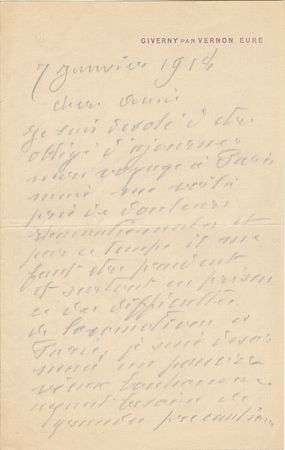 GIVERNY PAR VERNON EURE
7 Janvier 1914
cher ami
je suis désolé d'être
obligé d'ajourner
mon voyage à Paris
mais me voilà
pris de douleurs
rhumatismales et
par ce temps il me
faut être prudent
et surtout en présen
ce des difficultés
de locomotion à
Paris, je suis désor
mais un pauvre
vieux bonhomme
ayant besoin de
grandes précautions